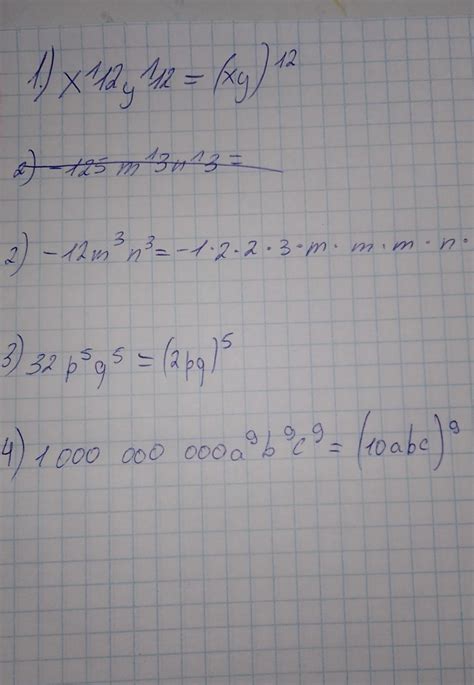 1.) x^12y^12 = (xy)^12
2) -125 m^3n^3 =
2) -12m³n³ = -1·2·2·3·m·m·m·n·
3) 32p⁵q⁵ = (2pq)⁵
4) 1 000 000 000a⁹b⁹c⁹ = (10abc)⁹